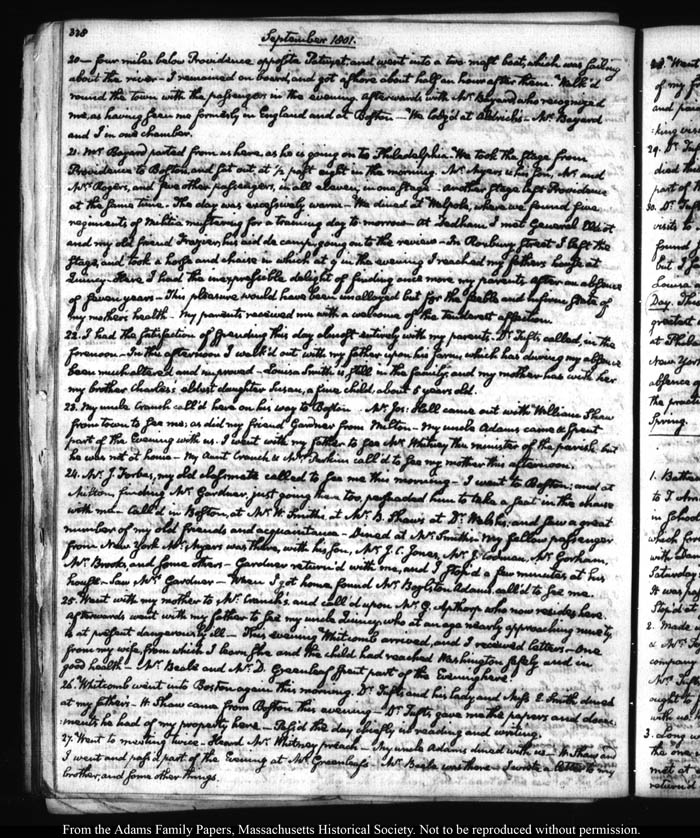 338
September 1801.
20— four miles below Providence opposite Patuxet, and went into a two mast boat, which was sailing
about the river — I remained on board, and got ashore about half an hour after them. Walk'd
round the town with the passengers in the evening, afterwards with Mr. Bayard, who recognized
me, as having seen me formerly in England and at Boston — We lodg'd at Aldrich's — Mr. Bayard
and I in one chamber.
21. Mr. Bayard parted from us here, as he is going on to Philadelphia. We took the stage from
Providence to Boston, and set out, at ½ past eight in the morning. Mr. Myers & his son, Mr. and
Mrs. Rogers, and five other passengers, in all eleven, in one stage — another stage left Providence
at the same time. The day was excessively warm — We dined at Walpole, where we found five
regiments of Militia mustering for a training day to-morrow — At Dedham I met General Elliot
and my old friend Frazier, his aid de camp, going on to the review — In Roxbury Street I left the
Stage, and took a horse and chaise in which at 9 in the evening I reached my father's house at
Quincy — Here I had the inexpressible delight of finding once more my parents after an absence
of seven years — This pleasure would have been unalloyed but for the feeble and infirm state of
my mother's health — My parents received me with a welcome of the tenderest affection.
22. I had the satisfaction of spending this day almost entirely with my parents. Dr. Tufts called, in the
forenoon — In the afternoon I walk'd out with my father upon his farm, which has during my absence
been much altered and improved — Louisa Smith is still in the family; and my mother has with her
my brother Charles's eldest daughter Susan, a fine child about 5 years old.
23. My uncle Cranch call'd here on his way to Boston. Mr. Jos: Hall came out with William Shaw
from town to see me; as did my friend Gardner from Milton — My uncle Adams came & spent
part of the Evening with us. I went with my father to see Mr. Whitney the minister of the parish, but
he was not at home — My Aunt Cranch & Mrs. Perkins call'd to see my mother this afternoon.
24. Mr. J. Forbes, my old classmate called to see me this morning — I went to Boston; and at
Milton, finding Mr. Gardner, just going there too, persuaded him to take a seat in the chaise
with me — Call'd in Boston, at Mr. W. Smith's, at Mr. B. Shaw's, at Dr. Welsh's, and saw a great
number of my old friends and acquaintance — Dined at Mr. Smith's. My fellow passenger
from New York Mr. Myers was there, with his son, Mr. J. C. Jones, Mr. J. Codman, Mr. Gorham,
Mr. Brooks, and some others — Gardner return'd with me, and I stop'd a few minutes at his
house — Saw Mrs. Gardner — When I got home, found Mr. Boylston Adams call'd to see me.
25. Went with my mother to Mr. Cranch's, and call'd upon Mr. G. Apthorp who now resides here.
Afterwards went with my father to see my uncle Quincy, who at an age nearly approaching ninety,
is at present dangerously ill — This evening Whitcomb arrived, and I received letters — One
from my wife, from which I learn, she and the child had reached Washington safely and in
good health — Mr. Beale and Mr. D. Greenleaf spent part of the Evening here.
26. Whitcomb went into Boston again this morning. Dr. Tufts and his lady and Miss E. Smith dined
at my father's — W. Shaw came from Boston this evening — Dr. Tufts gave me the papers and docu-
ments he had of my property here — Pass'd the day chiefly in reading and writing.
27. Went to meeting twice — Heard Mr. Whitney preach — My uncle Adams dined with us — W. Shaw and
I went and pass'd part of the Evening at Mr. Greenleaf's — Mr. Beale was there — I wrote a letter to my
brother, and some other things.
28. Went
of my f
and par
29. Dr. Tuf
died thi
part of
30. Dr. Tuf
visits to
found
but I f
Louisa
Day. The
greatest
at Phila
New York
absence
the practi
Spring.
1. Bath
to T. Am
in school
which for
with
Saturday
It was
Stop'd at
2. Made
& Mr. To
company
Mr. Tuft
ought to
with us
3. Long w
the one
met at
return'd
From the Adams Family Papers, Massachusetts Historical Society. Not to be reproduced without permission.